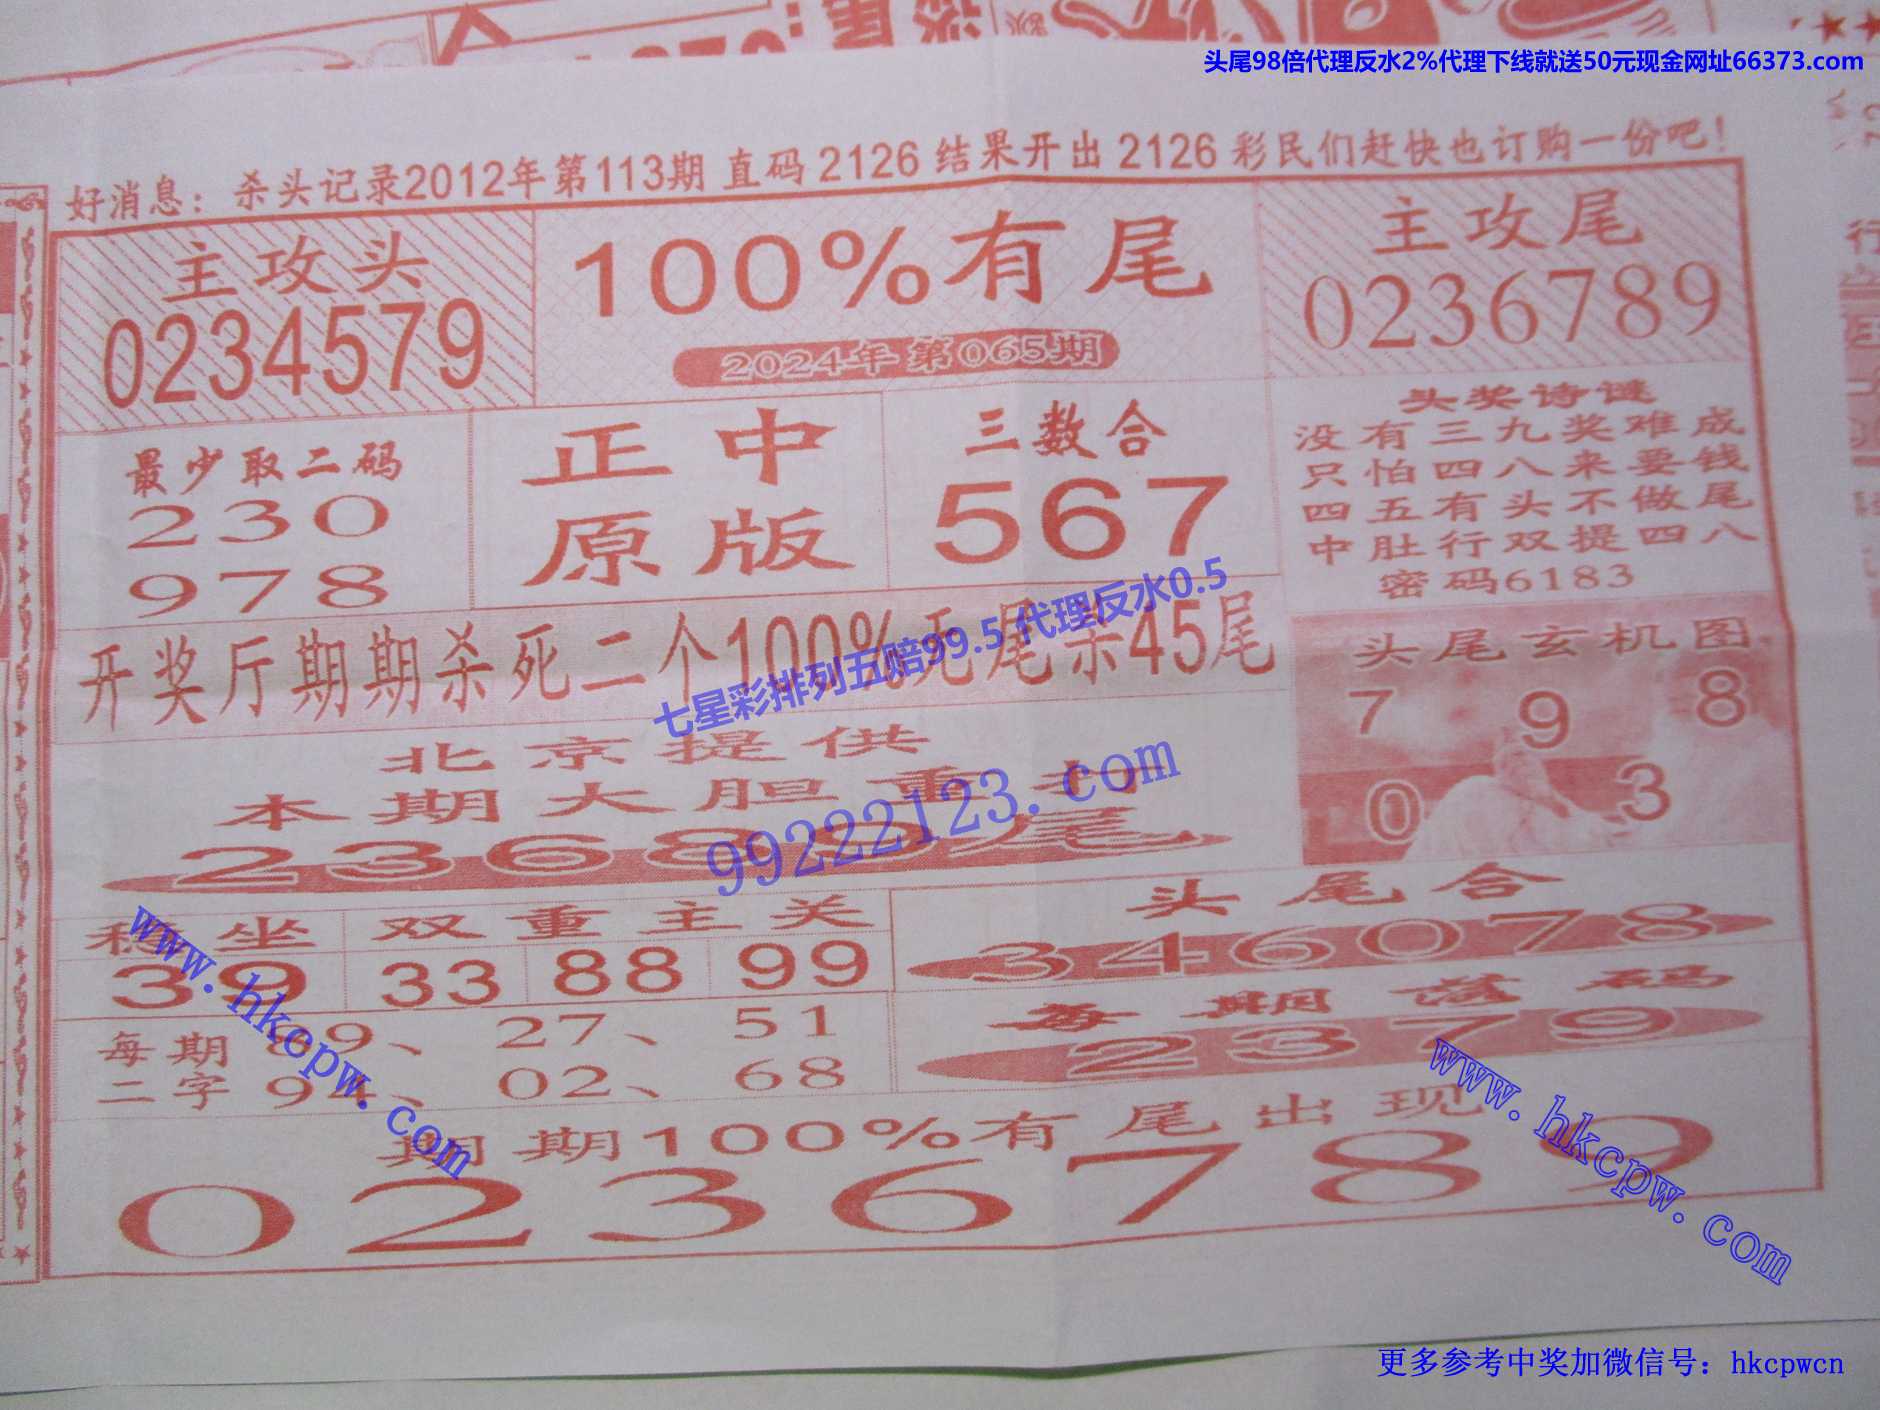 头尾98倍代理反水2%代理下线就送50元现金网址66373.com
好消息：杀头记录2012年第113期 直码 2126 结果开出 2126 彩民们赶快也订购一份吧！
主攻头
0234579
100%有尾
2024年 第065期
主攻尾
0236789
最少取二码
230
978
正中
原版
三数合
567
头奖诗谜
没有三九奖难成
只怕四八来要钱
四五有头不做尾
中肚行双提四八
密码6183
开奖厅期期杀死二个100%无尾杀45尾
七星彩排列五赔99.5 代理反水0.5
头尾玄机图
7 9 8
0 3
北京提供
本期大胆重打
2368 尾
99222123.com
稳坐
39
双重主关
33 88 99
头尾合
346078
每期落码
2379
每期
二字
89、27、51
94、02、68
www.hkcpw.com
www.hkcpw.com
期期100%有尾出现
0236789
更多参考中奖加微信号：hkcpwcn